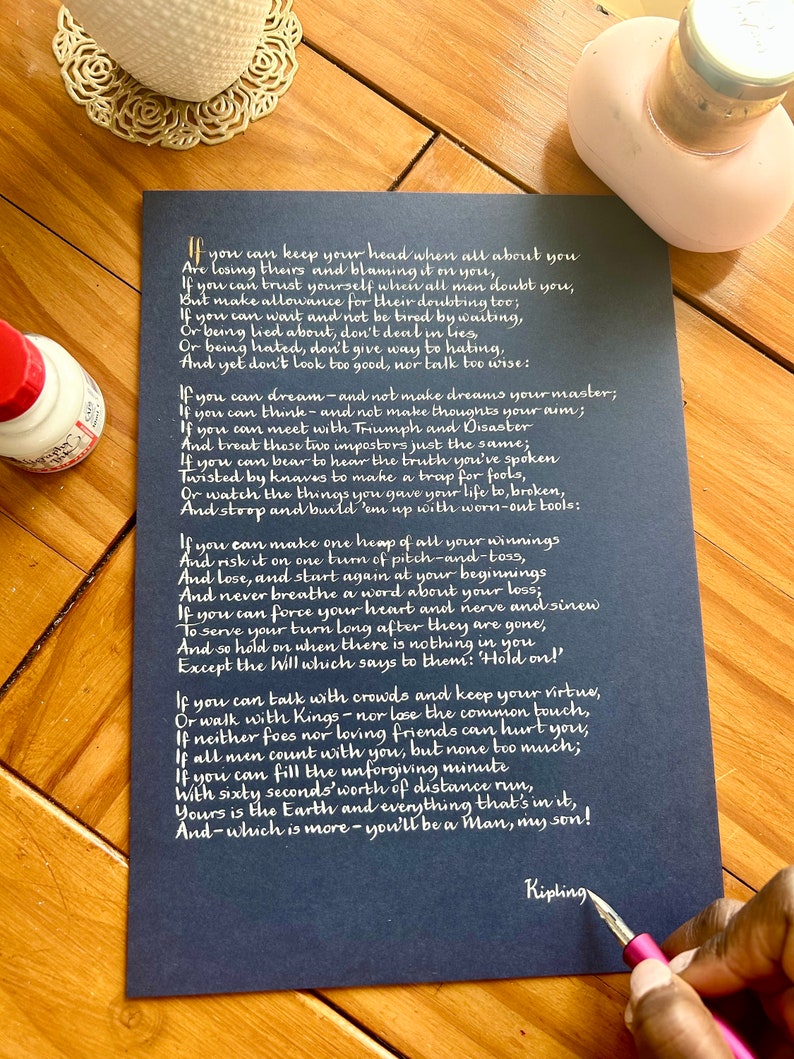 If you can keep your head when all about you
Are losing theirs and blaming it on you,
If you can trust yourself when all men doubt you,
But make allowance for their doubting too;
If you can wait and not be tired by waiting,
Or being lied about, don't deal in lies,
Or being hated, don't give way to hating,
And yet don't look too good, nor talk too wise:
If you can dream – and not make dreams your master;
If you can think – and not make thoughts your aim;
If you can meet with Triumph and Disaster
And treat those two impostors just the same;
If you can bear to hear the truth you've spoken
Twisted by knaves to make a trap for fools,
Or watch the things you gave your life to, broken,
And stoop and build 'em up with worn-out tools:
If you can make one heap of all your winnings
And risk it on one turn of pitch-and-toss,
And lose, and start again at your beginnings
And never breathe a word about your loss;
If you can force your heart and nerve and sinew
To serve your turn long after they are gone,
And so hold on when there is nothing in you
Except the Will which says to them: 'Hold on!'
If you can talk with crowds and keep your virtue,
Or walk with Kings – nor lose the common touch,
If neither foes nor loving friends can hurt you,
If all men count with you, but none too much;
If you can fill the unforgiving minute
With sixty seconds' worth of distance run,
Yours is the Earth and everything that's in it,
And – which is more – you'll be a Man, my son!
Kipling